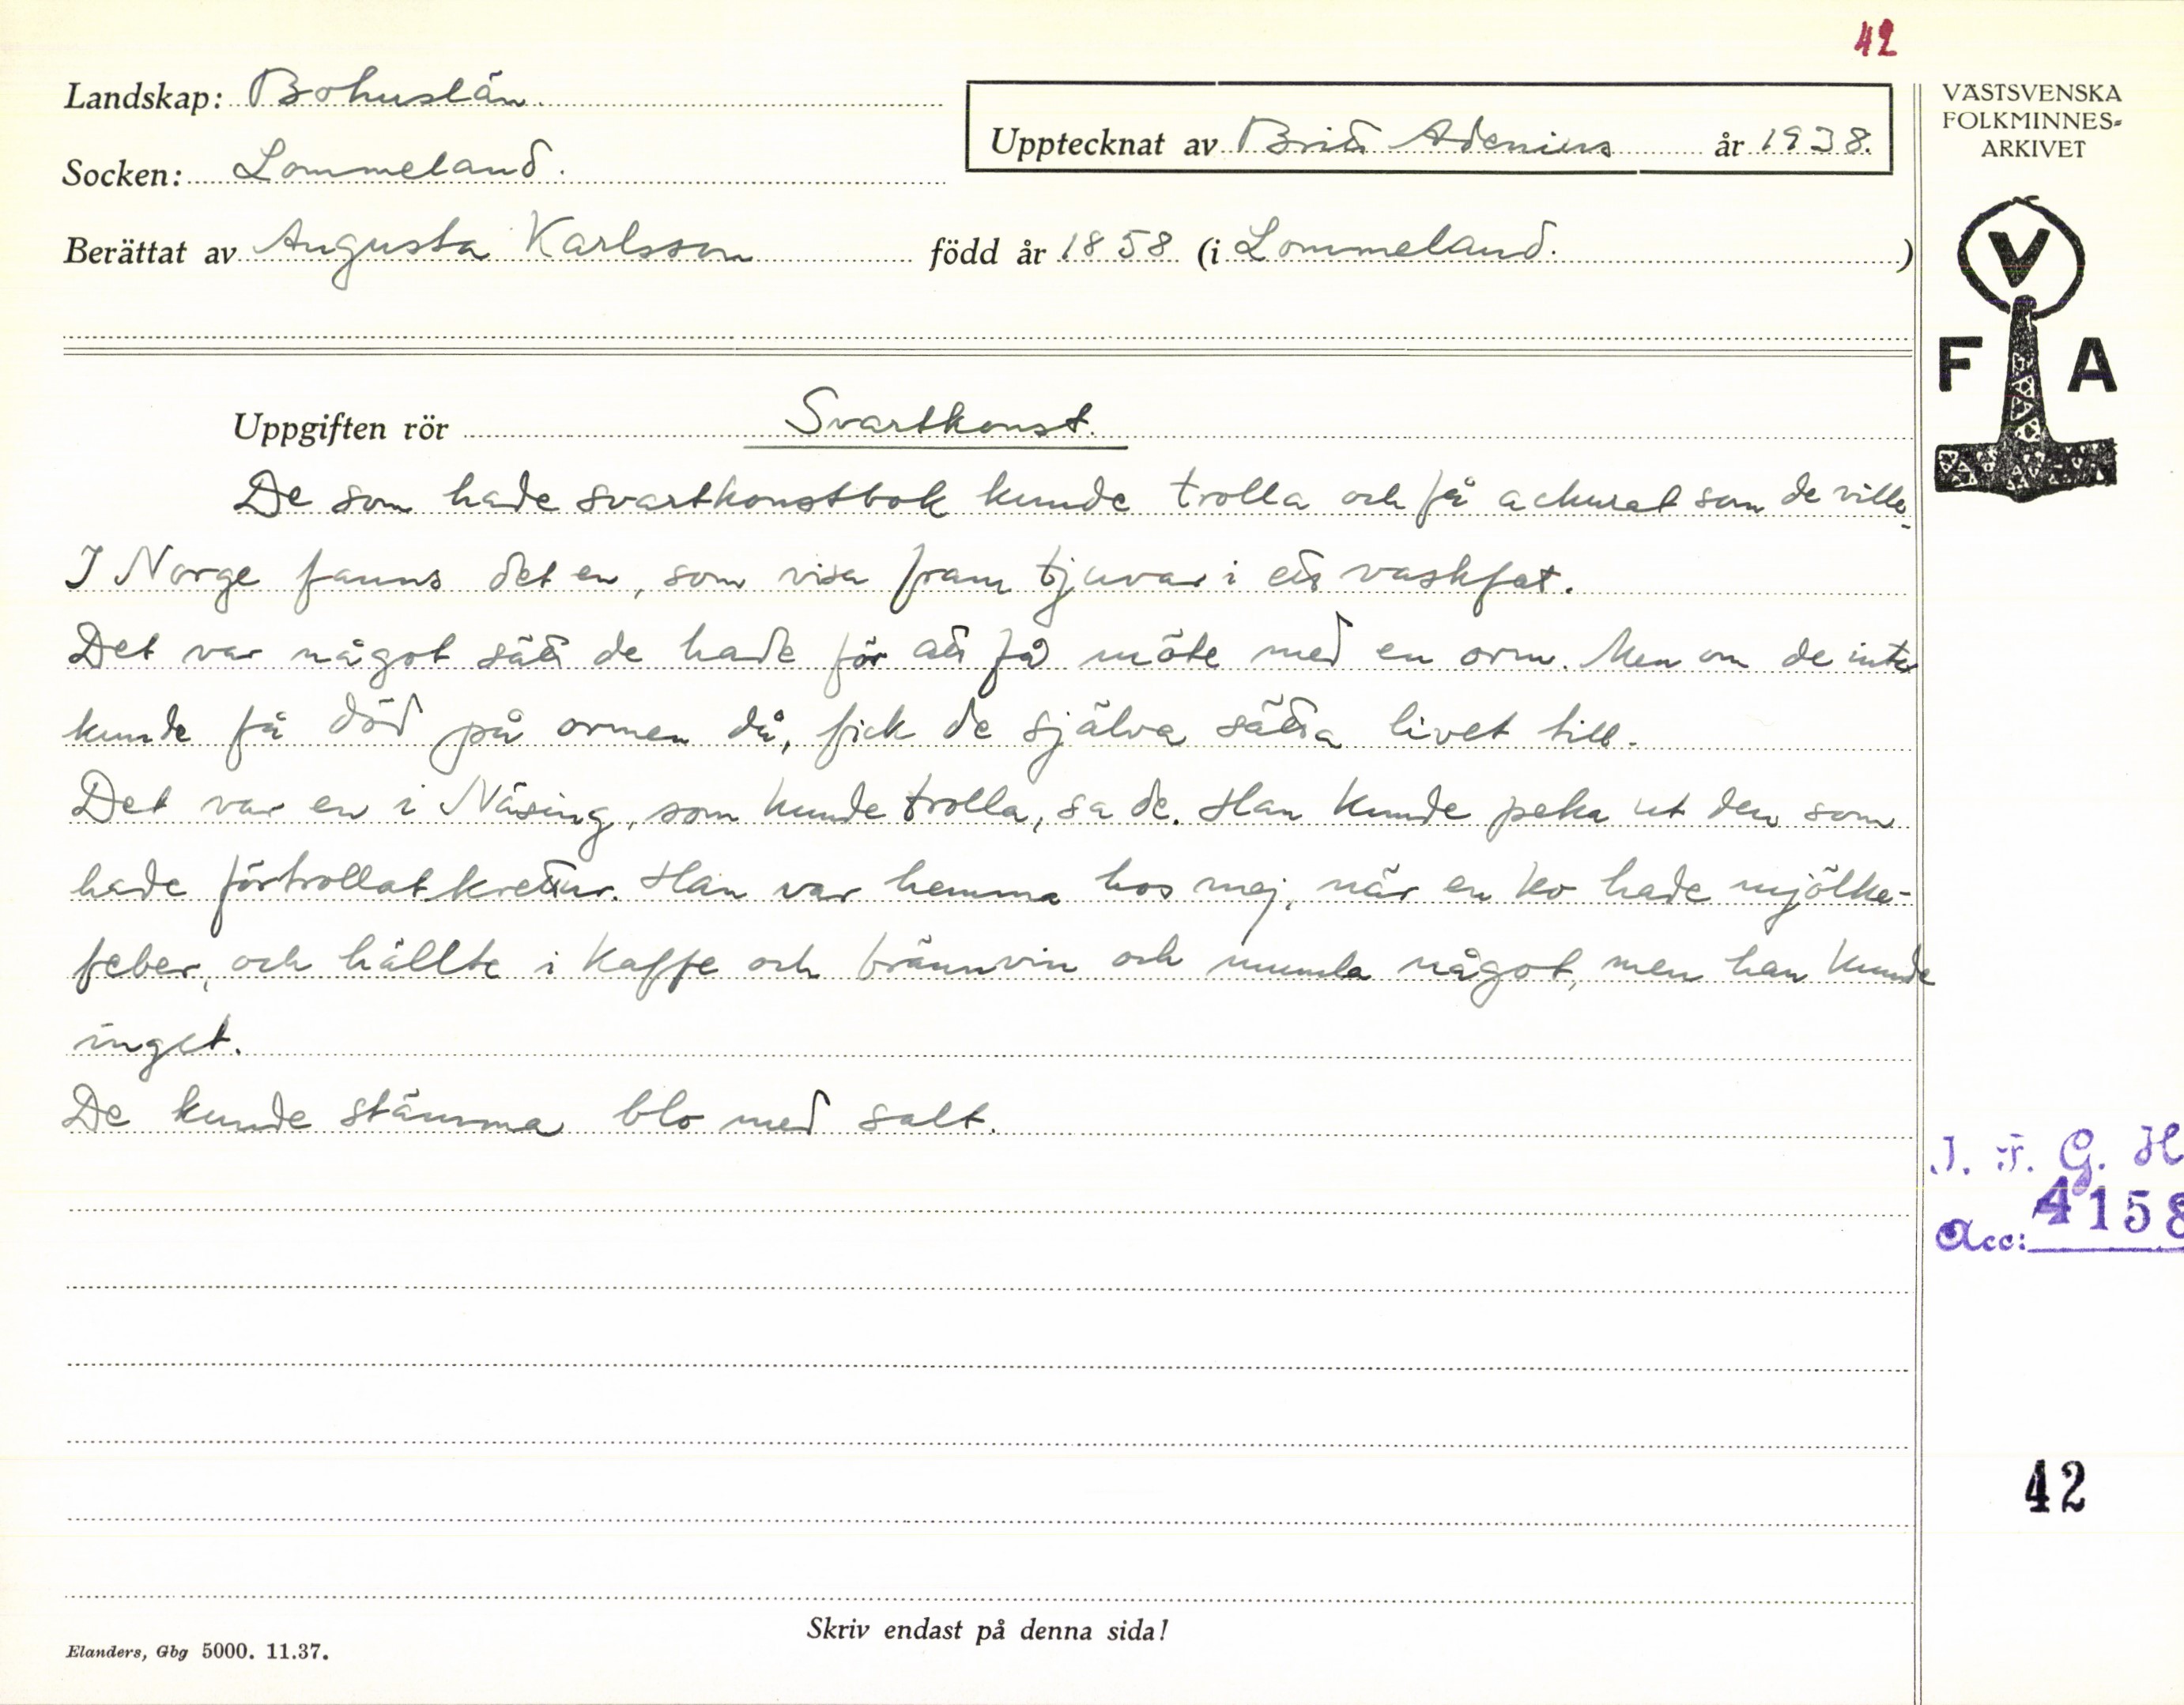 42
Landskap: Bohuslän.
Upptecknat av Britt Adenius år 1938.
Socken: Lommeland.
Berättat av Augusta Karlsson född år 1858 (i Lommeland.)
VÄSTSVENSKA
FOLKMINNES-
ARKIVET
V
F A
Uppgiften rör Svartkonst.
De som hade svartkonstbok kunde trolla och få ackurat som de ville.
I Norge fanns det en, som visa fram tjuvar i ett vaskfat.
Det var något sätt de hade för att få möte med en orm. Men om de inte
kunde få död på ormen då, fick de själva sätta livet till.
Det var en i Näsing, som kunde trolla, sa de. Han kunde peka ut den som
hade förtrollat kreatur. Han var hemma hos mej, när en ko hade mjölke-
feber, och hällte i kaffe och brännvin och mumla något, men han kunde
inget.
De kunde stämma blo med salt.
I. F. G. H
Acc: 4158
42
Skriv endast på denna sida!
Elanders, Gbg 5000. 11.37.